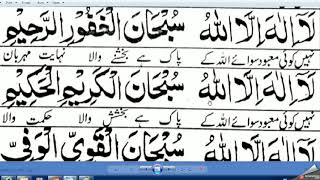 لَآ اِلٰهَ اِلَّا اللهُ سُبْحَانَ الْغَفُوْرِ الرَّحِيْمِ
نہیں کوئی معبود سوائے اللہ کے پاک ہے بخشنے والا نہایت مہربان
لَآ اِلٰهَ اِلَّا اللهُ سُبْحَانَ الْكَرِيْمِ الْحَكِيْمِ
نہیں کوئی معبود سوائے اللہ کے پاک ہے بخشش والا حکمت والا
لَآ اِلٰهَ اِلَّا اللهُ سُبْحَانَ الْقَوِيِّ الْوَفِيِّ